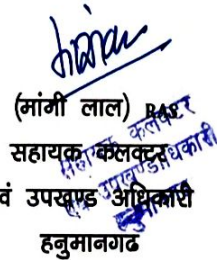 (मांगी लाल) RAS
सहायक कलक्टर
वं उपखण्ड अधिकारी
हनुमानगढ
सहायक कलक्टर
उपखण्ड अधिकारी